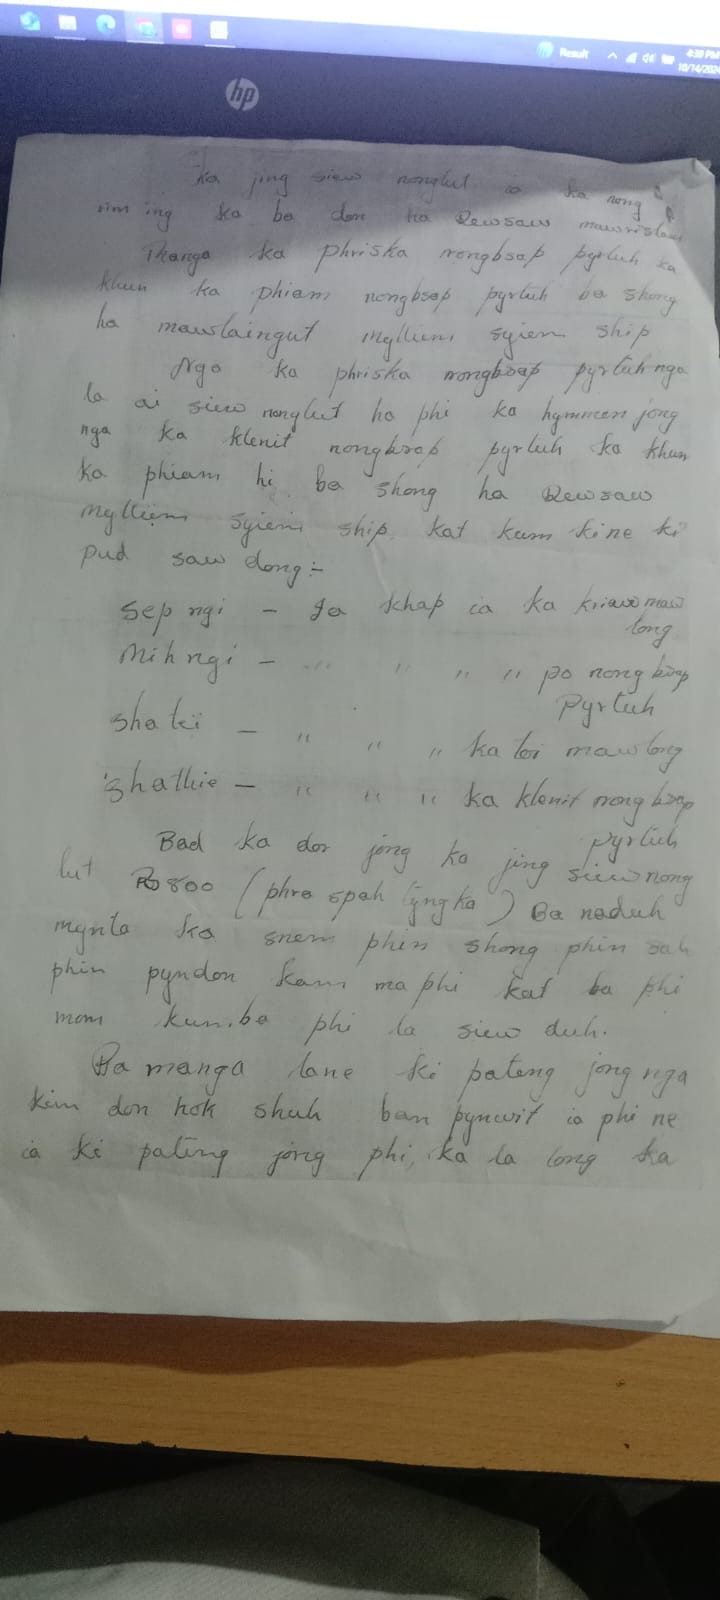 Result
4:39 PM
10/14/2024
hp
ka jing siew nonglut ia ka nong
rim ing ka ba don ha Rewsaw
Manga ka phriska nongbsap pyrtuh ka
khun ka phiam nongbsap pyrtuh ba shong
ha mawlaingut myllium syiem ship
Nga ka phriska nongbsap pyrtuh nga
la ai siew nonglut ha phi ka hymmen jong
nga ka klenit nongbsap pyrtuh ka khun
ka phiam hi ba shong ha Rewsaw
mylliem syiem ship. kat kum kine ki
pud saw dong:-
Sep ngi - Ia khap ia ka maw
long
Mih ngi - " " " " po nong bsap
Pyrtuh
shatei - " " " ka toi mawlong
shathie - " " " ka klenit nong bsap
Pyrtuh
Bad ka dor jong ka jing siew nong
lut Rs 800 (phra spah tyngka) Ba naduh
mynta ka snem phin shong phin sah
phin pyndon kam ma phi kat ba phi
mon kumba phi la siew duh.
Ba manga lane ki pateng jong nga
kim don hok shuh ban pynwit ia phi ne
ia ki pateng jong phi, ka la long ka